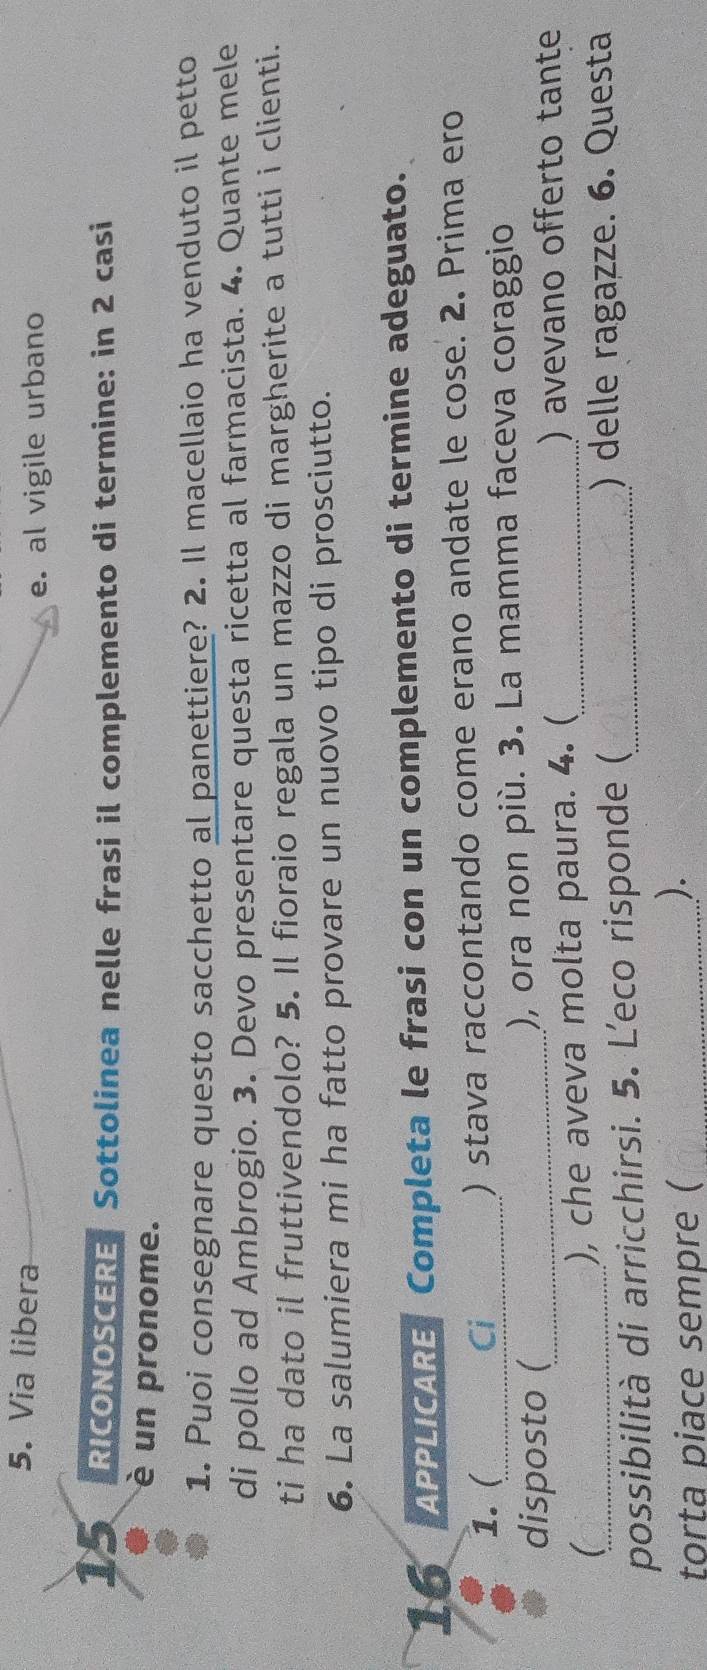 5. Via libera
e. al vigile urbano
15 RICONOSCERE Sottolinea nelle frasi il complemento di termine: in 2 casi
è un pronome.
1. Puoi consegnare questo sacchetto al panettiere? 2. Il macellaio ha venduto il petto
di pollo ad Ambrogio. 3. Devo presentare questa ricetta al farmacista. 4. Quante mele
ti ha dato il fruttivendolo? 5. Il fioraio regala un mazzo di margherite a tutti i clienti.
6. La salumiera mi ha fatto provare un nuovo tipo di prosciutto.
16 APPLICARE Completa le frasi con un complemento di termine adeguato.
1. ( Ci ) stava raccontando come erano andate le cose. 2. Prima ero
disposto ( ), ora non più. 3. La mamma faceva coraggio
( ), che aveva molta paura. 4. ( ) avevano offerto tante
possibilità di arricchirsi. 5. L'eco risponde ( ) delle ragazze. 6. Questa
torta piace sempre ( ).